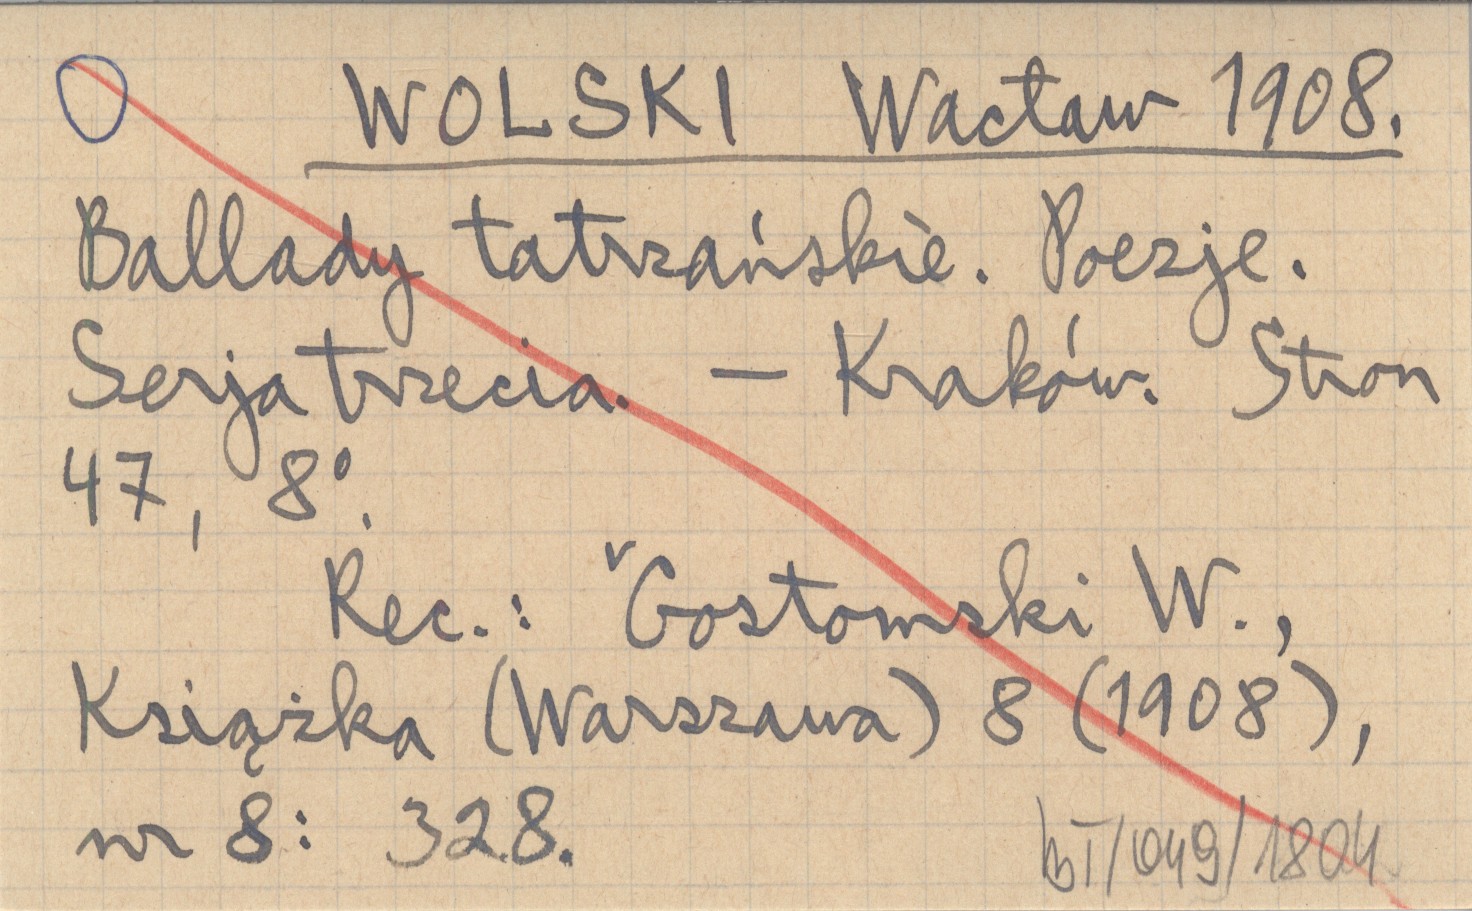 WOLSKI Wacław 1908.
Ballady tatrzańskie. Poezje.
Serja trzecia. — Kraków. Stron
47, 8°.
Rec.: Gostomski W.,
Książka (Warszawa) 8 (1908),
nr 8: 328.
/049/1804